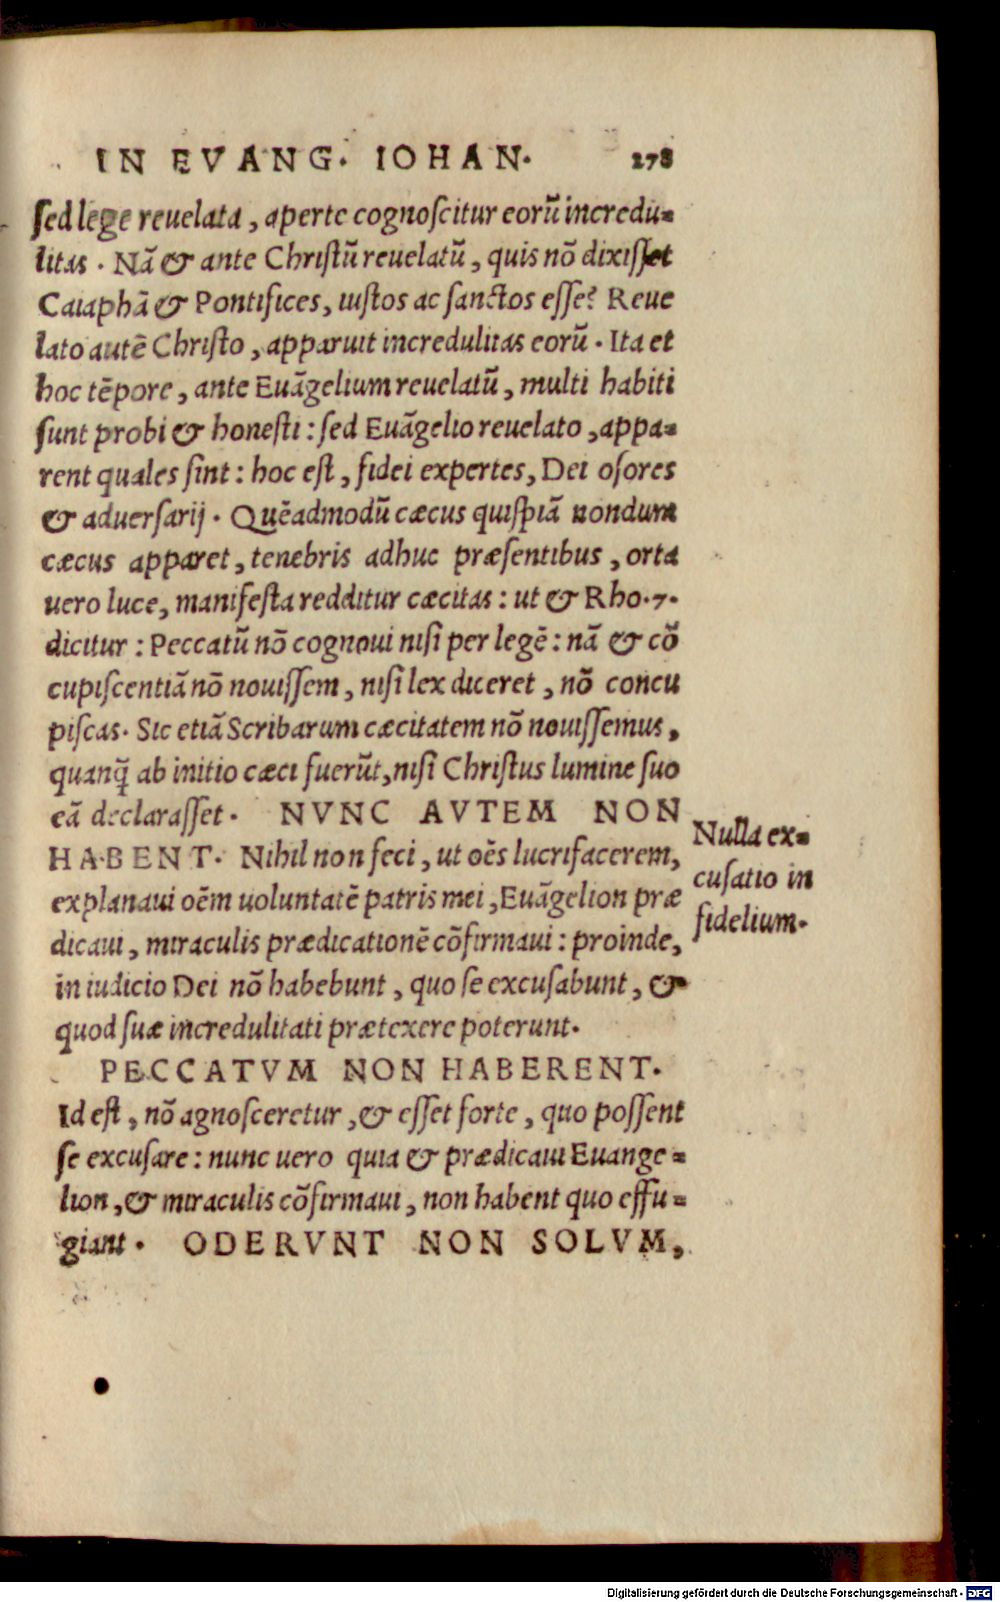 IN EVANG. IOHAN. 278
sed lege reuelata, aperte cognoscitur eorū incredu=
litas. Nā & ante Christū reuelatū, quis nō dixisset
Caiaphā & Pontifices, iustos ac sanctos esse? Reue
lato autē Christo, apparuit incredulitas eorū. Ita et
hoc tēpore, ante Euāgelium reuelatū, multi habiti
sunt probi & honesti: sed Euāgelio reuelato, appa=
rent quales sint: hoc est, fidei expertes, Dei osores
& aduersarij. Quēadmodū cæcus quispiā nondum
cæcus apparet, tenebris adhuc præsentibus, orta
uero luce, manifesta redditur cæcitas: ut & Rho.7.
dicitur: Peccatū nō cognoui nisi per legē: nā & cō
cupiscentiā nō nouissem, nisi lex diceret, nō concu
piscas. Sic etiā Scribarum cæcitatem nō nouissemus,
quanq̄ ab initio cæci fuerūt, nisi Christus lumine suo
eā declarasset. NVNC AVTEM NON
HABENT. Nihil non feci, ut oēs lucrifacerem,
explanaui oēm uoluntatē patris mei, Euāgelion præ
dicaui, miraculis prædicationē cōfirmaui: proinde,
in iudicio Dei nō habebunt, quo se excusabunt, &
quod suæ incredulitati prætexere poterunt.
PECCATVM NON HABERENT.
Id est, nō agnosceretur, & esset forte, quo possent
se excusare: nunc uero quia & prædicaui Euange=
lion, & miraculis cōfirmaui, non habent quo effu=
giant. ODERVNT NON SOLVM,
Nulla ex=
cusatio in
fidelium.
Digitalisierung gefördert durch die Deutsche Forschungsgemeinschaft - DFG